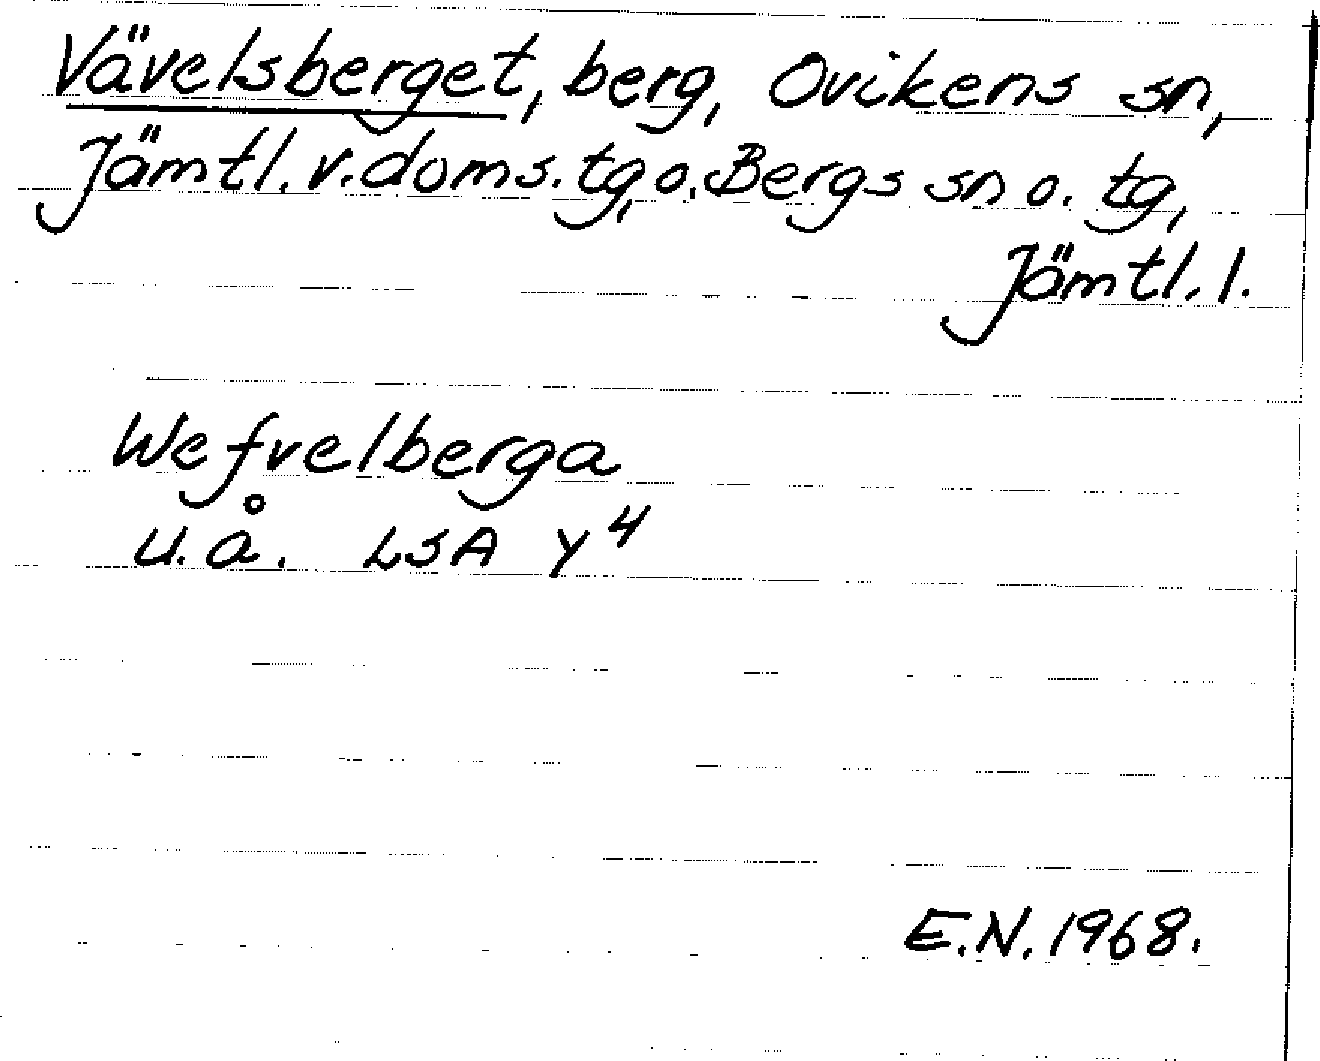 Vävelsberget, berg, Ovikens sn,
Jämtl. v. doms. tg, o. Bergs sn o. tg,
Jämtl. l.
Wefvelberga
u.å. LSA Y⁴
E.N. 1968.